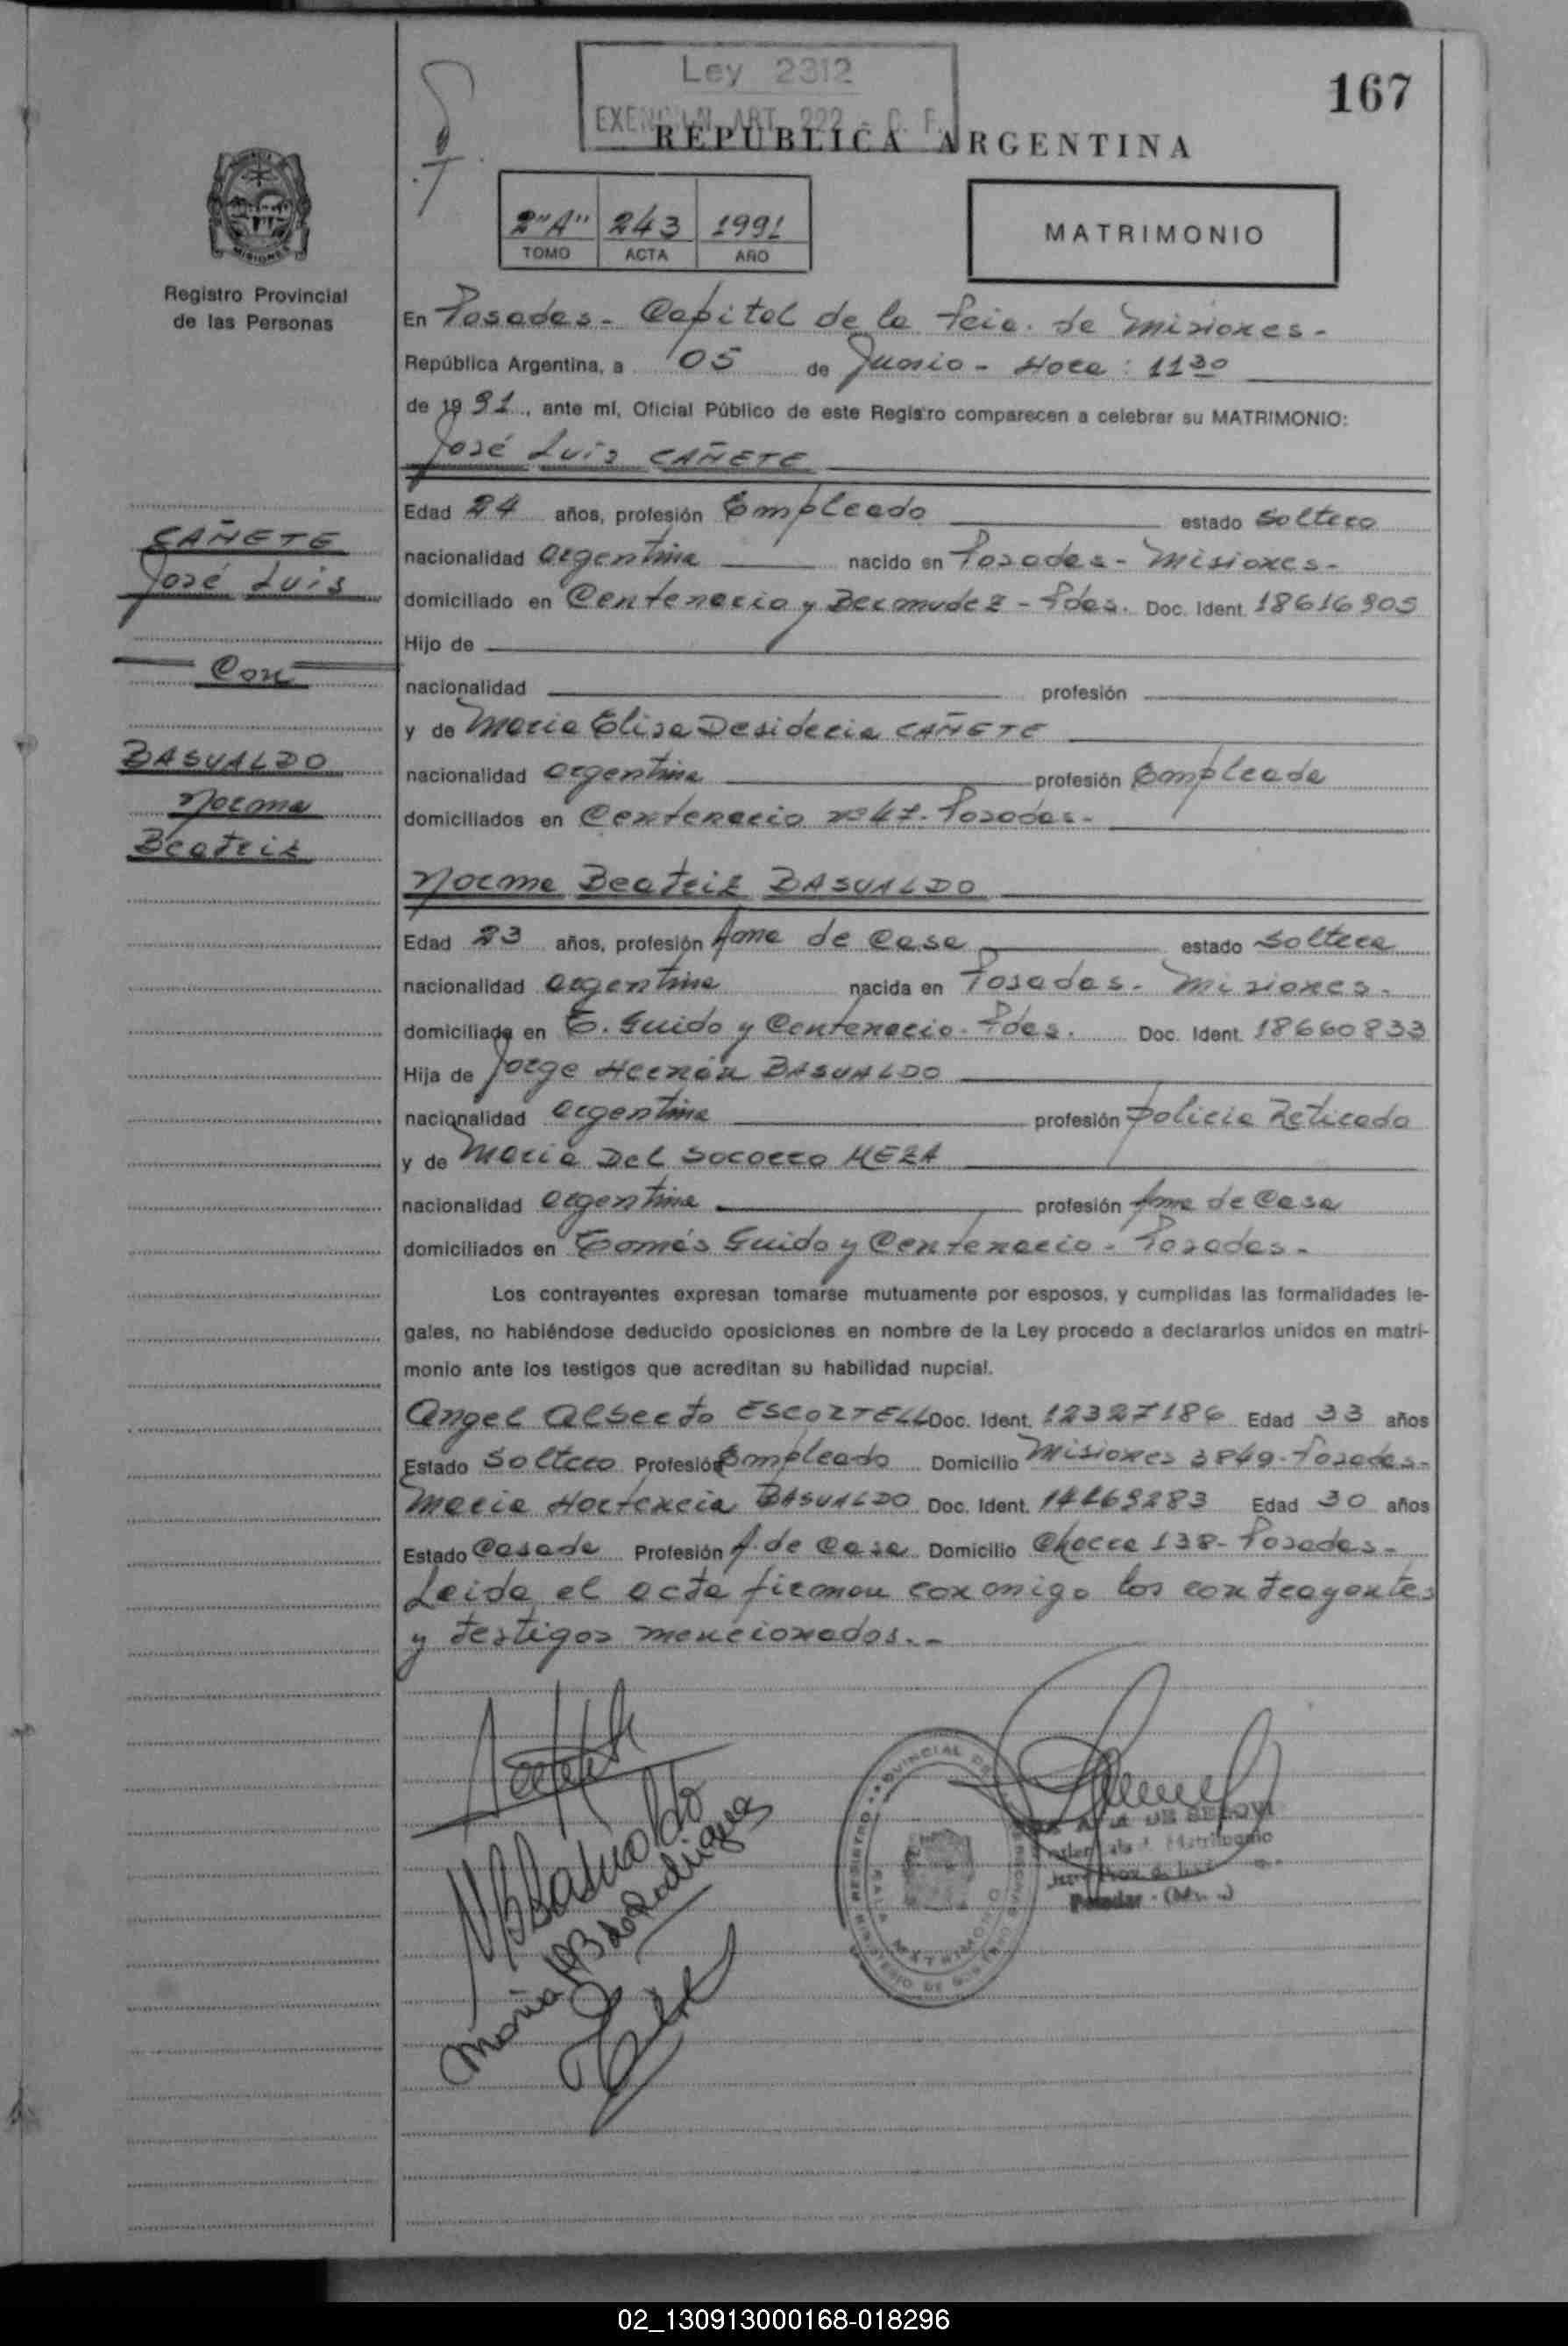 Ley 2312
167
EXENCION ART. 222 - C. F.
REPUBLICA ARGENTINA
2"A" 243 1991
TOMO ACTA AÑO
MATRIMONIO
MISIONES
Registro Provincial
de las Personas
En Posadas - Capital de la Pcia. de Misiones -
República Argentina, a 05 de Junio - Hora: 11 30
de 1991, ante mí, Oficial Público de este Registro comparecen a celebrar su MATRIMONIO:
José Luis CAÑETE
Edad 24 años, profesión Empleado estado Soltero
CAÑETE
nacionalidad argentina nacido en Posadas - Misiones -
José Luis
domiciliado en Centenario y Bermudez - Pdas. Doc. Ident. 18616905
Hijo de
Con
nacionalidad profesión
y de Maria Elisa Desideria CAÑETE
BASUALDO
nacionalidad argentina profesión Empleada
Norma
domiciliados en Centenario nº 47 - Posadas -
Beatriz
Norma Beatriz BASUALDO
Edad 23 años, profesión Ama de Casa estado Soltera
nacionalidad argentina nacida en Posadas - Misiones -
domiciliada en T. Guido y Centenario - Pdas. Doc. Ident. 18660833
Hija de Jorge Hernán BASUALDO
nacionalidad argentina profesión Policia Retirado
y de Maria Del Socorro MEZA
nacionalidad argentina profesión Ama de Casa
domiciliados en Tomás Guido y Centenario - Posadas -
Los contrayentes expresan tomarse mutuamente por esposos, y cumplidas las formalidades le-
gales, no habiéndose deducido oposiciones en nombre de la Ley procedo a declararlos unidos en matri-
monio ante los testigos que acreditan su habilidad nupcial.
Angel Alberto Doc. Ident. 12327186 Edad 33 años
Estado Soltero Profesión Empleado Domicilio Misiones 3849 - Posadas -
Maria Hortencia BASUALDO Doc. Ident. 14469283 Edad 30 años
Estado Casada Profesión A. de Casa Domicilio 138 - Posadas -
Leida el acta firman conmigo los contrayentes
y testigos mencionados. -
NBBasualdo
Maria H B de Rodriguez
REGISTRO PROVINCIAL DE
MATRIMONIO
Posadas - (Mnes.)
02_130913000168-018296